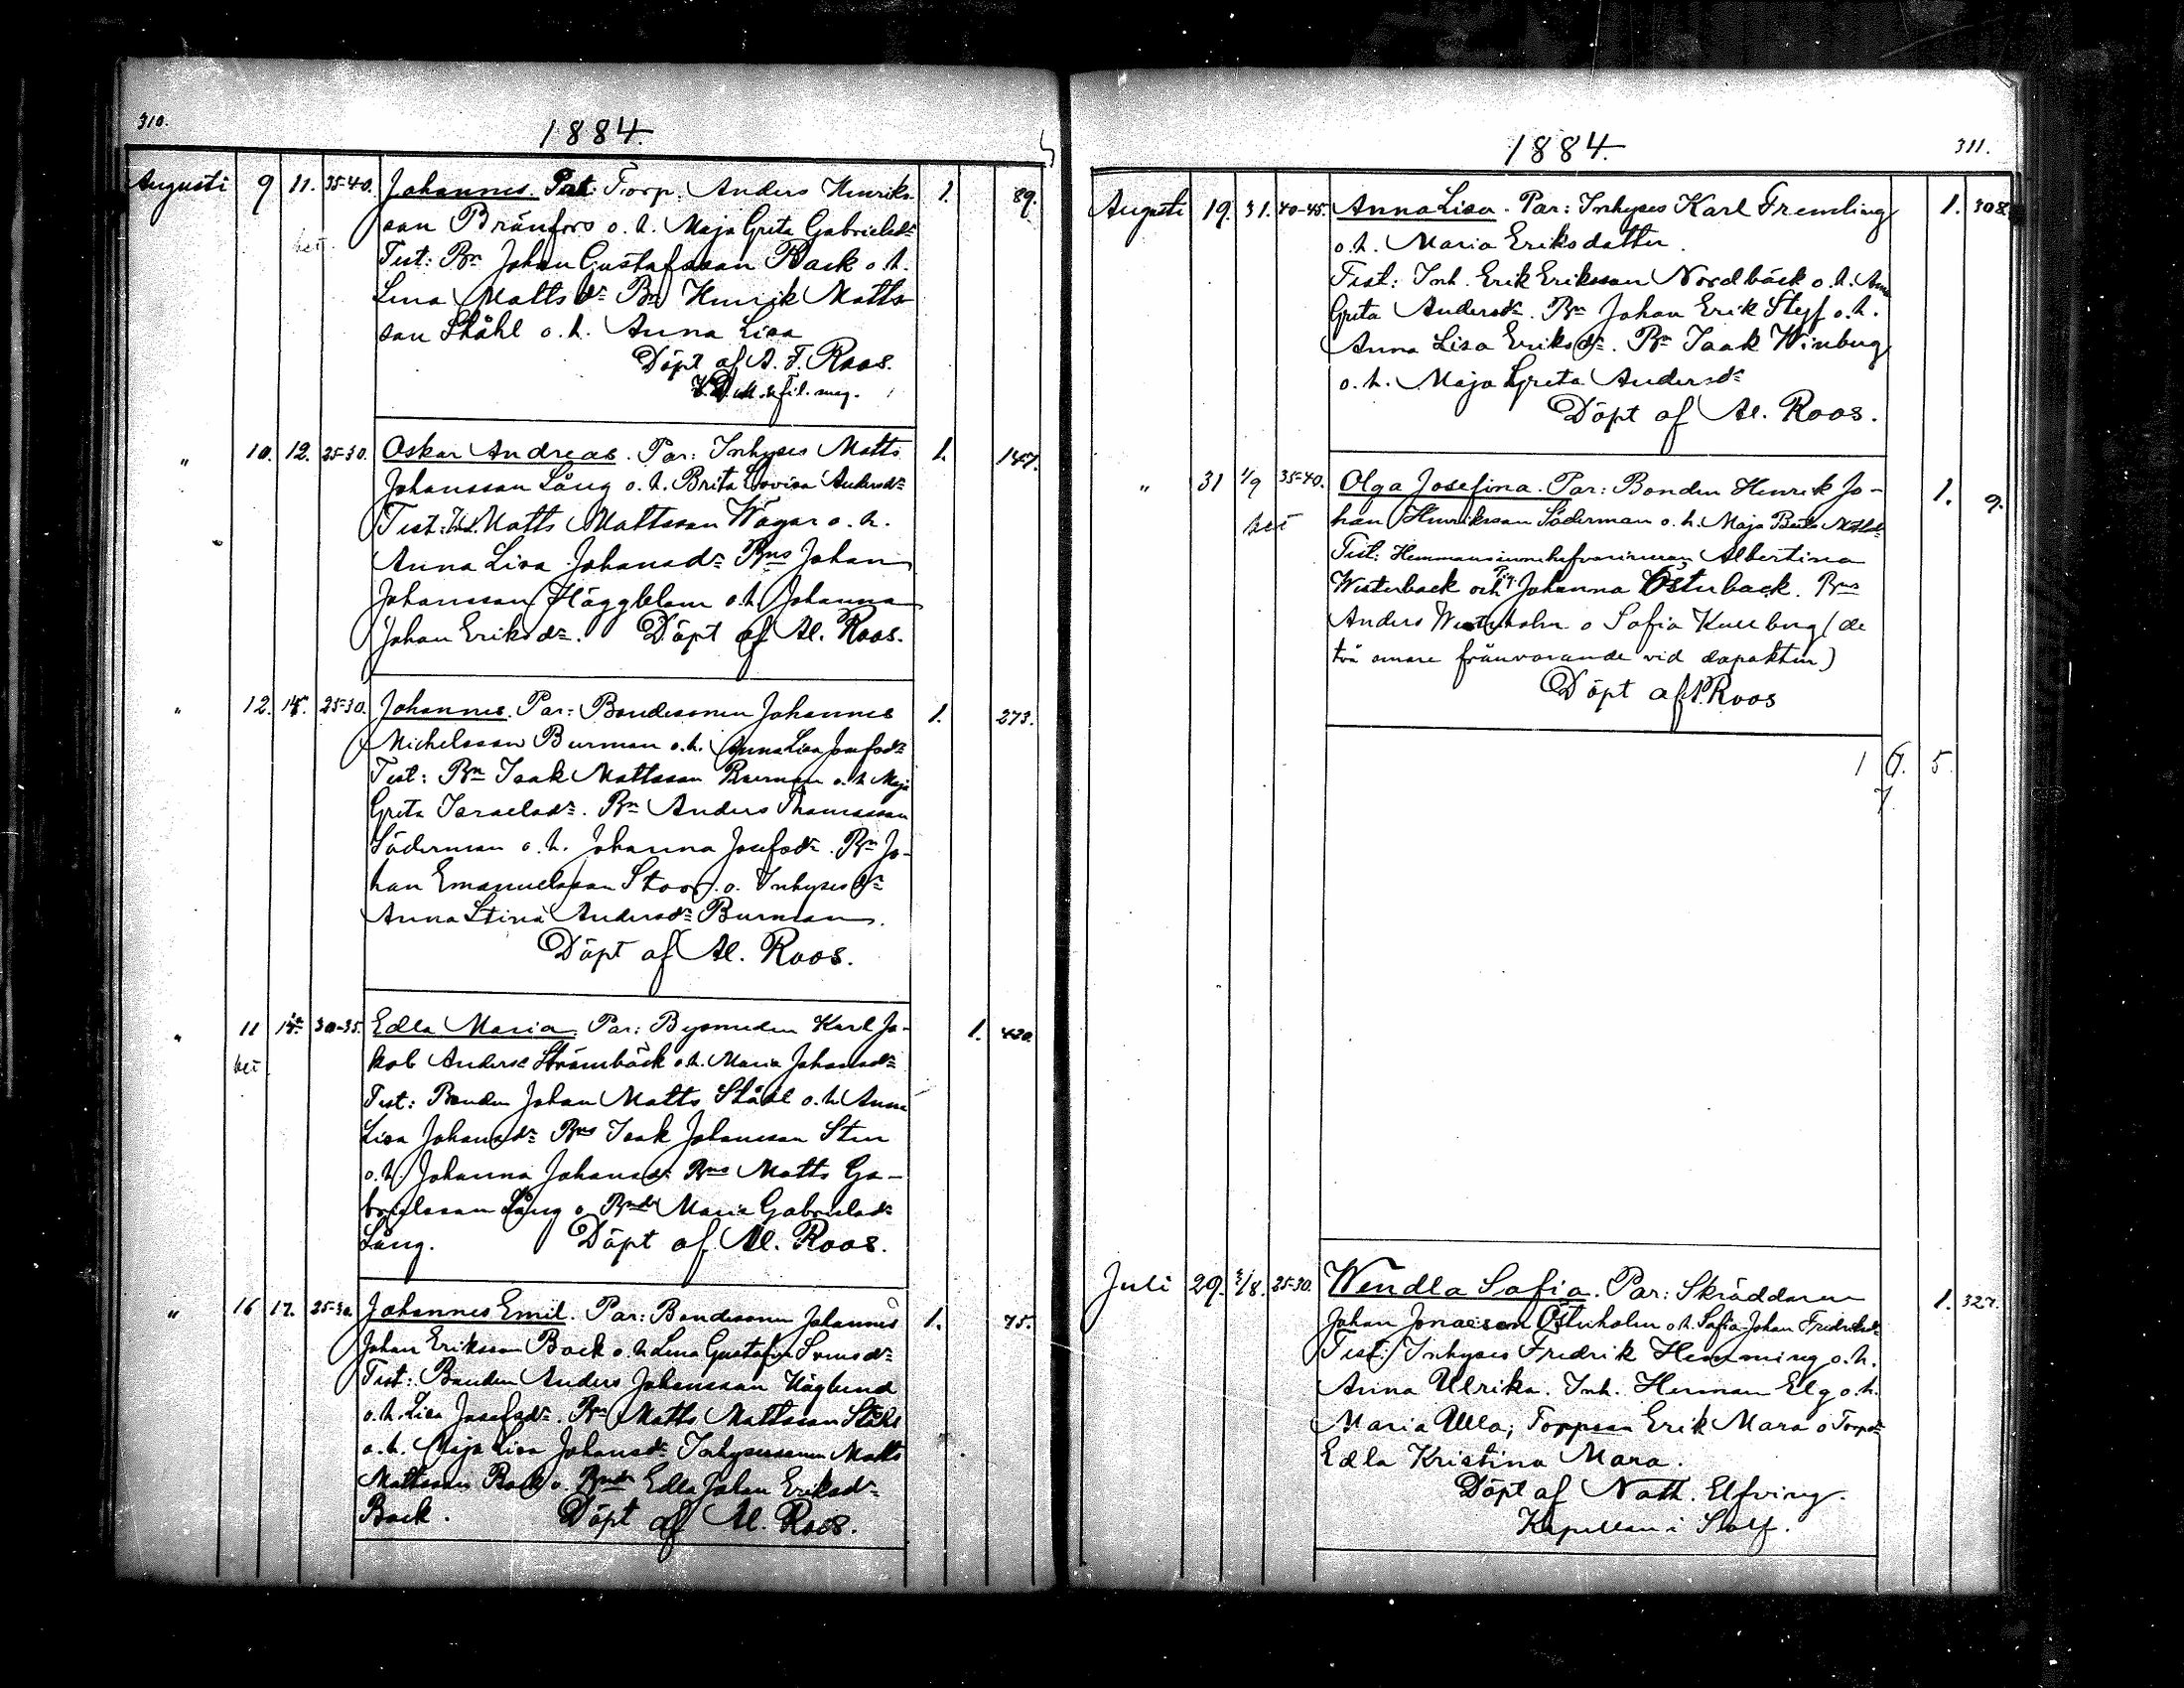 310.
1884.
Augusti 9 11. 35-40. Johannes. Par: Torp. Anders Henriks-
son Brännfors o. h. Maja Greta Gabrielsdr
Test: Bn Johan Gustafsson Back o. h.
Lena Mattsdr Bn Henrik Matts-
son Ståhl o. h. Anna Lisa 1. 89.
Döpt af A. F. Roos.
V.D.M. & fil. mag.
" 10. 12. 25-30. Oskar Andreas. Par: Inhyses Matts 1. 147.
Johansson Lång o. h. Brita Lovisa Andersdr
Test: Inh. Matts Mattsson Wägar o. h.
Anna Lisa Johansdr Bns Johan
Johansson Häggblom o. h. Johanna
Johan Eriksdr. Döpt af Al. Roos.
" 12. 25-30. Johannes. Par: Bondesonen Johannes 1. 273.
Michelsson Burman o. h. Anna Lisa Josefsdr
Test: Bn Isak Mattsson Burman o. h. Maja
Greta Israelsdr. Bn Anders Thomasson
Söderman o. h. Johanna Josefsdr. Bn Jo-
han Emanuelsson Stoor o. Inhysesdr
Anna Stina Andersdr Burman.
Döpt af Al. Roos.
" 11 30-35. Edla Maria. Par: Bysmeden Karl Ja- 1. 420.
kob Anders Strömbäck o. h. Maria Johansdr
Test: Bonden Johan Matts Ståhl o. h. Anna
Lisa Johansdr Bns Isak Johansson Sten
o. h. Johanna Johansdr Bns Matts Ga-
brielsson Lång o. Bndr Maria Gabrielsdr
Lång. Döpt af Al. Roos.
" 16 17. 25-30. Johannes Emil. Par: Bondesonen Johannes 1. 75.
Johan Eriksson Back o. h. Lena Gustafva Svensdr
Test: Bonden Anders Johansson Häglund
o. h. Lisa Josefsdr. Bn Matts Mattsson Ståhl
o. h. Maja Lisa Johansdr Inhysessonen Matts
Mattsson Back o. Bndr Edla Johan Eriksdr
Back. Döpt af Al. Roos.
1884. 311.
Augusti 19. 31. 40-45. Anna Lisa. Par: Inhyses Karl Fremling 1. 308
o. h. Maria Eriksdotter.
Test: Inh. Erik Eriksson Nordbäck o. h. Anna
Greta Andersdr. Bn Johan Erik Styf o. h.
Anna Lisa Eriksdr. Bn Isak Winberg
o. h. Maja Greta Andersdr
Döpt af Al. Roos.
" 31 1/9 35-40. Olga Josefina. Par: Bonden Henrik Jo- 1. 9.
han Henriksson Söderman o. h. Maja Brita Mattsdr
Test: Hemmansinnehafvarinnan Albertina
Westerback och Pig. Johanna Österback. Bns
Anders Westerholm o Sofia Kullberg (de
två senare frånvarande vid dopakten)
Döpt af A. Roos
1 6. 5.
7
Juli 29. 3/8. 25-30. Wendla Sofia. Par: Skräddaren 1. 327.
Johan Jonasson Österholm o. h. Sofia Johan Fredriksdr
Test: Inhyses Fredrik Hemming o. h.
Anna Ulrika. Inh. Herman Elg o. h.
Maria Ulla; Torpsson Erik Mara o Torpdr
Edla Kristina Mara.
Döpt af Nath. Elfving.
Kapellan i Solf.